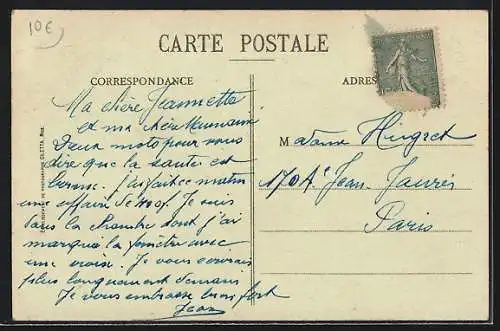 10€
CARTE POSTALE
CORRESPONDANCE
ADRES
Ma chère Jeannette
et ma chère Maman
Deux mots pour vous
dire que la santé est
bonne. J'ai fait ce matin
une affaire de 400f. Je suis
dans la chambre dont j'ai
marqué la fenêtre avec
une croix. Je vous écrirais
plus longuement demain
Je vous embrasse bien fort
Jean
Madame Hugret
170 Ae Jean Jaurès
Paris